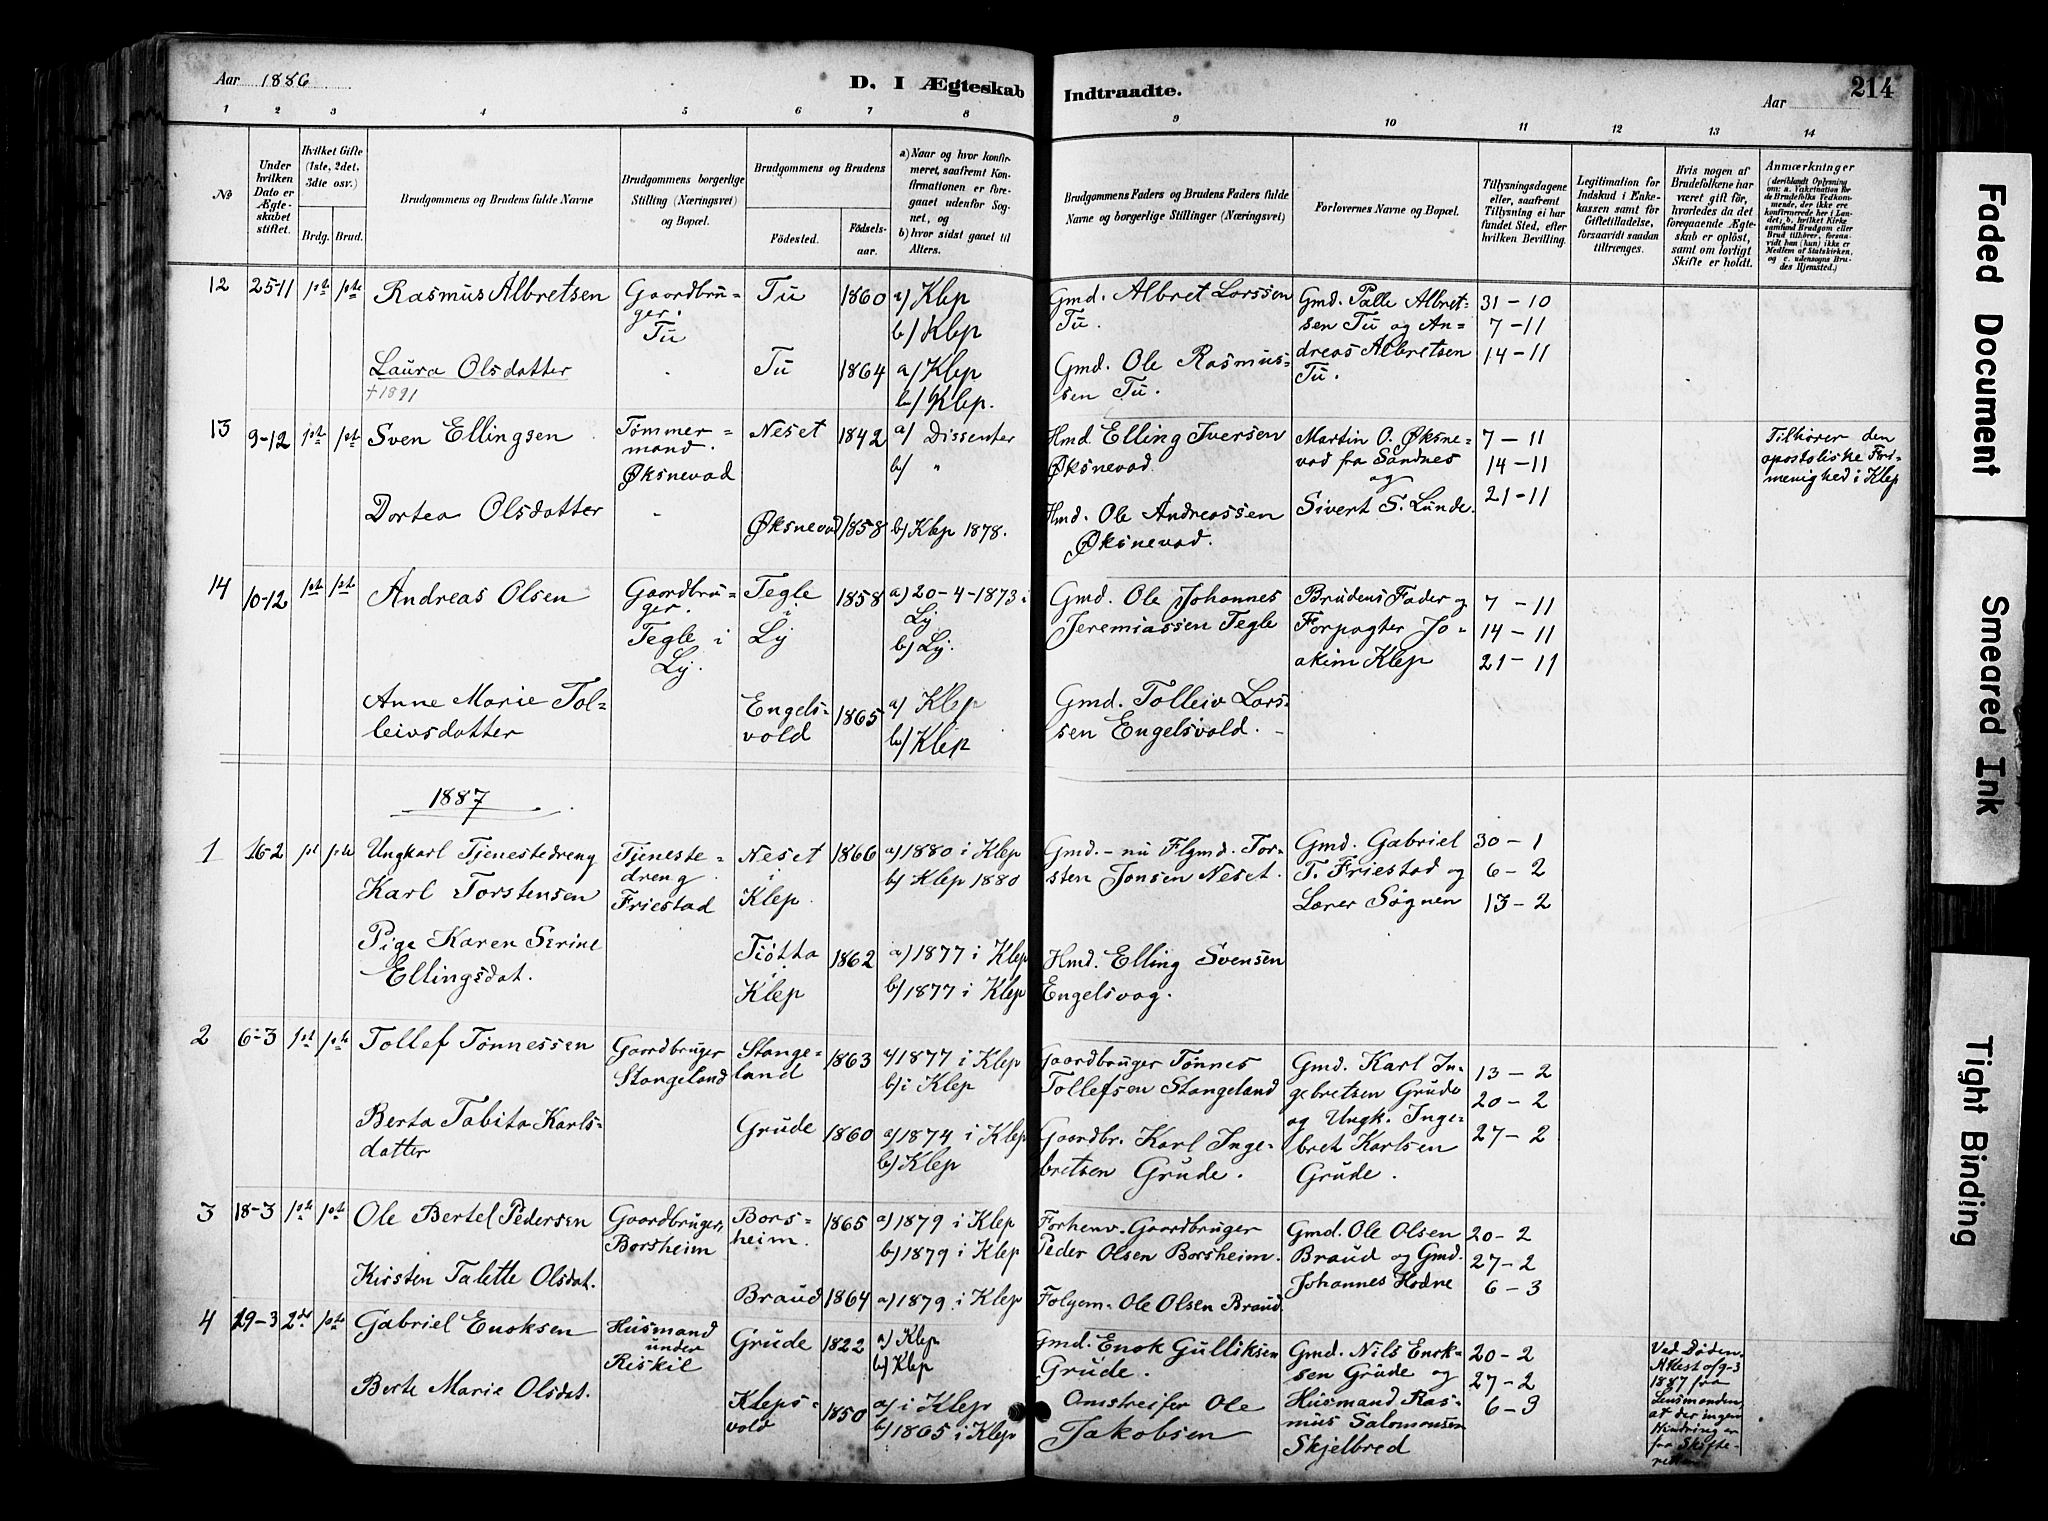 Aar 1886
D. I Ægteskab Indtraadte.
Aar
214
1 2 3 4 5 6 7 8 9 10 11 12 13 14
No
Under hvilken Dato er Ægteskabet stiftet.
Hvilket Gifte (1ste, 2det, 3die osv.)
Brdg. Brud.
Brudgommens og Brudens fulde Navne
Brudgommens borgerlige Stilling (Næringsvei) og Bopæl.
Brudgommens og Brudens
Fødested.
Fødselsaar.
a) Naar og hvor konfirmeret, saafremt Konfirmationen er foregaaet udenfor Sognet, og
b) hvor sidst gaaet til Alters.
Brudgommens Faders og Brudens Faders fulde Navne og borgerlige Stillinger (Næringsvei)
Forlovernes Navne og Bopæl.
Tillysningsdagene eller, saafremt Tillysning ei har fundet Sted, efter hvilken Bevilling.
Legitimation for Indskud i Enkekassen samt for Giftetilladelse, forsaavidt saadan tiltrænges.
Hvis nogen af Brudefolkene har været gift før, hvorledes da det foregaaende Ægteskab er opløst, samt om lovligt Skifte er holdt.
Anmærkninger
(deriblandt Oplysning om: a. Vakcination for de Brudefolks Vedkommende, der ikke ere konfirmerede her i Landet; b. hvilket Kirkesamfund Brudgom eller Brud tilhører, forsaavidt han (hun) ikke er Medlem af Statskirken, og c. udensogns Brudes Hjemsted.)
12 25-11 1ste 1ste Rasmus Albretsen Gaardbru- Tu 1860 a) Klep Gmd. Albret Larssen Gmd. Palle Albret- 31-10
ger. b) Klep Tu. sen Tu og An- 7-11
Tu
Laura Olsdatter Tu 1864 a) Klep Gmd. Ole Rasmus- dreas Albretsen 14-11
† 1891 b) Klep. sen Tu. Tu.
13 9-12 1ste 1ste Sven Ellingsen Tømmer- Neset 1842 a) Dissenter Hmd. Elling Iversen Martin O. Øksne- 7-11 Tilhører den
mand. b) " Øksnevad. vad fra Sandnes 14-11 apostoliske Fri-
Øksnevad og 21-11 menighed i Klep
Dortea Olsdatter Øksnevad 1858 b) Klep 1878. Hmd. Ole Andreassen Sivert S. Lunde.
Øksnevad.
14 10-12 1ste 1ste Andreas Olsen Gaardbru- Tegle 1858 a) 20-4-1873 i Gmd. Ole Johannes Brudens Fader og 7-11
ger. i Ly Jeremiassen Tegle Forpagter Jo- 14-11
Tegle i Ly b) Ly. akim Klep 21-11
Ly.
Anne Marie Tol- Engels- 1865 a) Klep Gmd. Tolleiv Lars-
leivsdatter vold b) Klep sen Engelsvold.
1887
1 16-2 1st 1ste Ungkarl Tjenestedreng Tjeneste- Neset 1866 a) 1880 i Klep Gmd. - nu Flgmd. Tor- Gmd. Gabriel 30-1
Karl Torstensen dreng i b) Klep 1880 sten Jonsen Neset. T. Friestad og 6-2
Friestad Klep. Lærer Søgnen 13-2
Pige Karen Serine Tiøtta 1862 a) 1877 i Klep Hmd. Elling Svensen
Ellingsdat. Klep b) 1877 i Klep Engelsvag.
2 6-3 1st 1ste Tollef Tønnessen Gaardbruger Stange- 1863 a) 1877 i Klep Gaardbruger Tønnes Gmd. Karl In- 13-2
Stangeland land b) i Klep Tollefsen Stangeland gebretsen Grude 20-2
Berta Tabita Karls- Grude 1860 a) 1874 i Klep Gaardbr. Karl Inge- og Ungk. Inge- 27-2
datter b) Klep bretsen Grude. bret Karlsen
Grude.
3 18-3 1ste 1ste Ole Bertel Pedersen Gaardbruger, Bors- 1865 a) 1879 i Klep Forhenv. Gaardbruger Gmd. Ole Olsen 20-2
Borsheim heim. b) 1879 i Klep Peder Olsen Borsheim. Braud og Gmd. 27-2
Kirsten Talette Olsdat. Braud 1864 a) 1879 i Klep Folgem. Ole Olsen Braud. Johannes Hodne 6-3
4 29-3 2det 1ste Gabriel Enoksen Husmand Grude 1822 a) Klep Gmd. Enok Gulliksen Gmd. Nils Enok- 20-2 Ved Døden.
under b) Klep Grude. sen Grude og 27-2 Atest af 9-3
Riskil 1887 fra
Berte Marie Olsdat. Kleps- 1850 a) i Klep Omstreifer Ole Husmand Ras- 6-9 Lensmanden,
vold b) 1865 i Klep Jakobsen mus Salomonsen at der ingen
Skjelbred Hindring er
fra Skifte-
Faded Document
Smeared Ink
Tight Binding